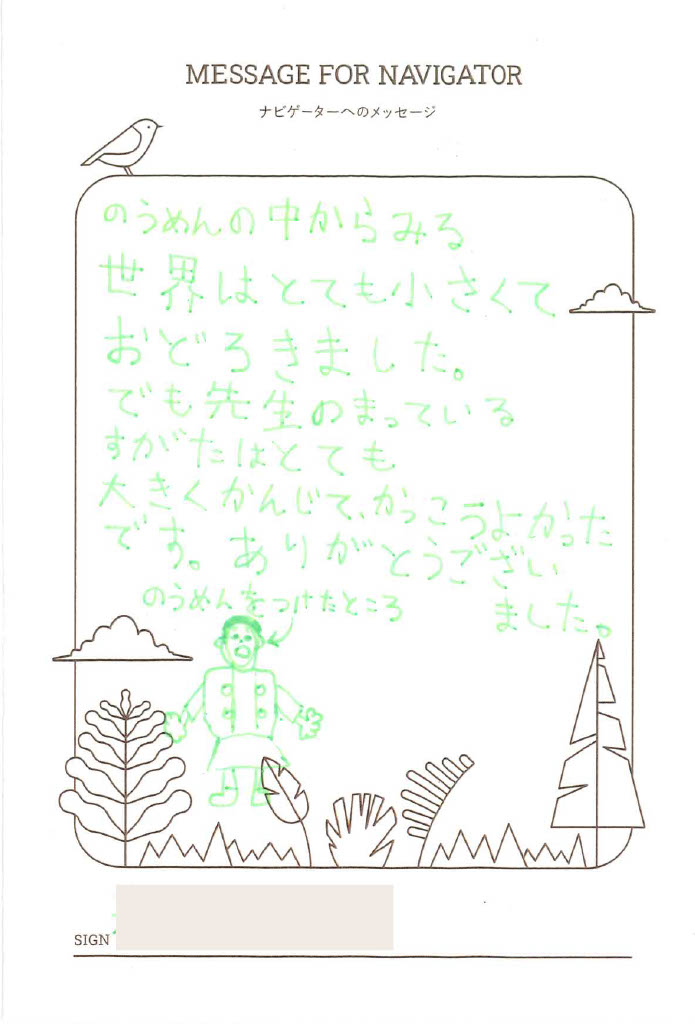 MESSAGE FOR NAVIGATOR
ナビゲーターへのメッセージ
のうめんの中からみる
世界はとても小さくて
おどろきました。
でも先生のまっている
すがたはとても
大きくかんじて、かっこうよかった
です。ありがとうござい
ました。
のうめんをつけたところ
SIGN